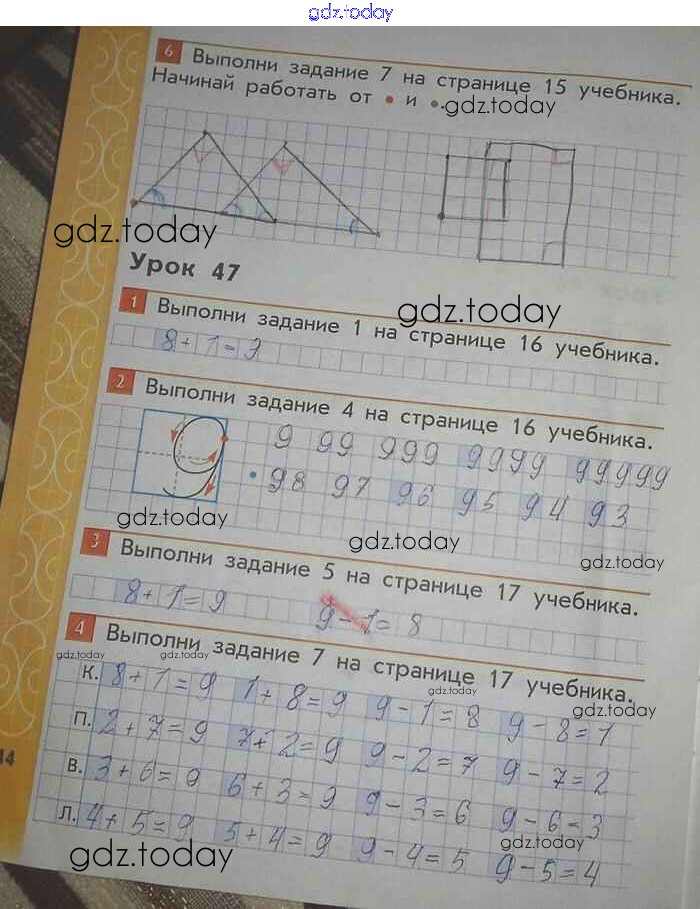 gdz.today
6 Выполни задание 7 на странице 15 учебника.
Начинай работать от • и •.
gdz.today
gdz.today
Урок 47
gdz.today
1 Выполни задание 1 на странице 16 учебника.
8+1=3
2 Выполни задание 4 на странице 16 учебника.
9 99 999 9999 99999
98 97 96 95 94 93
gdz.today
gdz.today
3 Выполни задание 5 на странице 17 учебника.
gdz.today
8+1=9 9-1=8
4 Выполни задание 7 на странице 17 учебника.
gdz.today gdz.today
К. 8+1=9 1+8=9 9-1=8 9-8=1
gdz.today gdz.today
П. 2+7=9 7+2=9 9-2=7 9-7=2
В. 3+6=9 6+3=9 9-3=6 9-6=3
Л. 4+5=9 5+4=9 9-4=5 9-5=4
gdz.today gdz.today